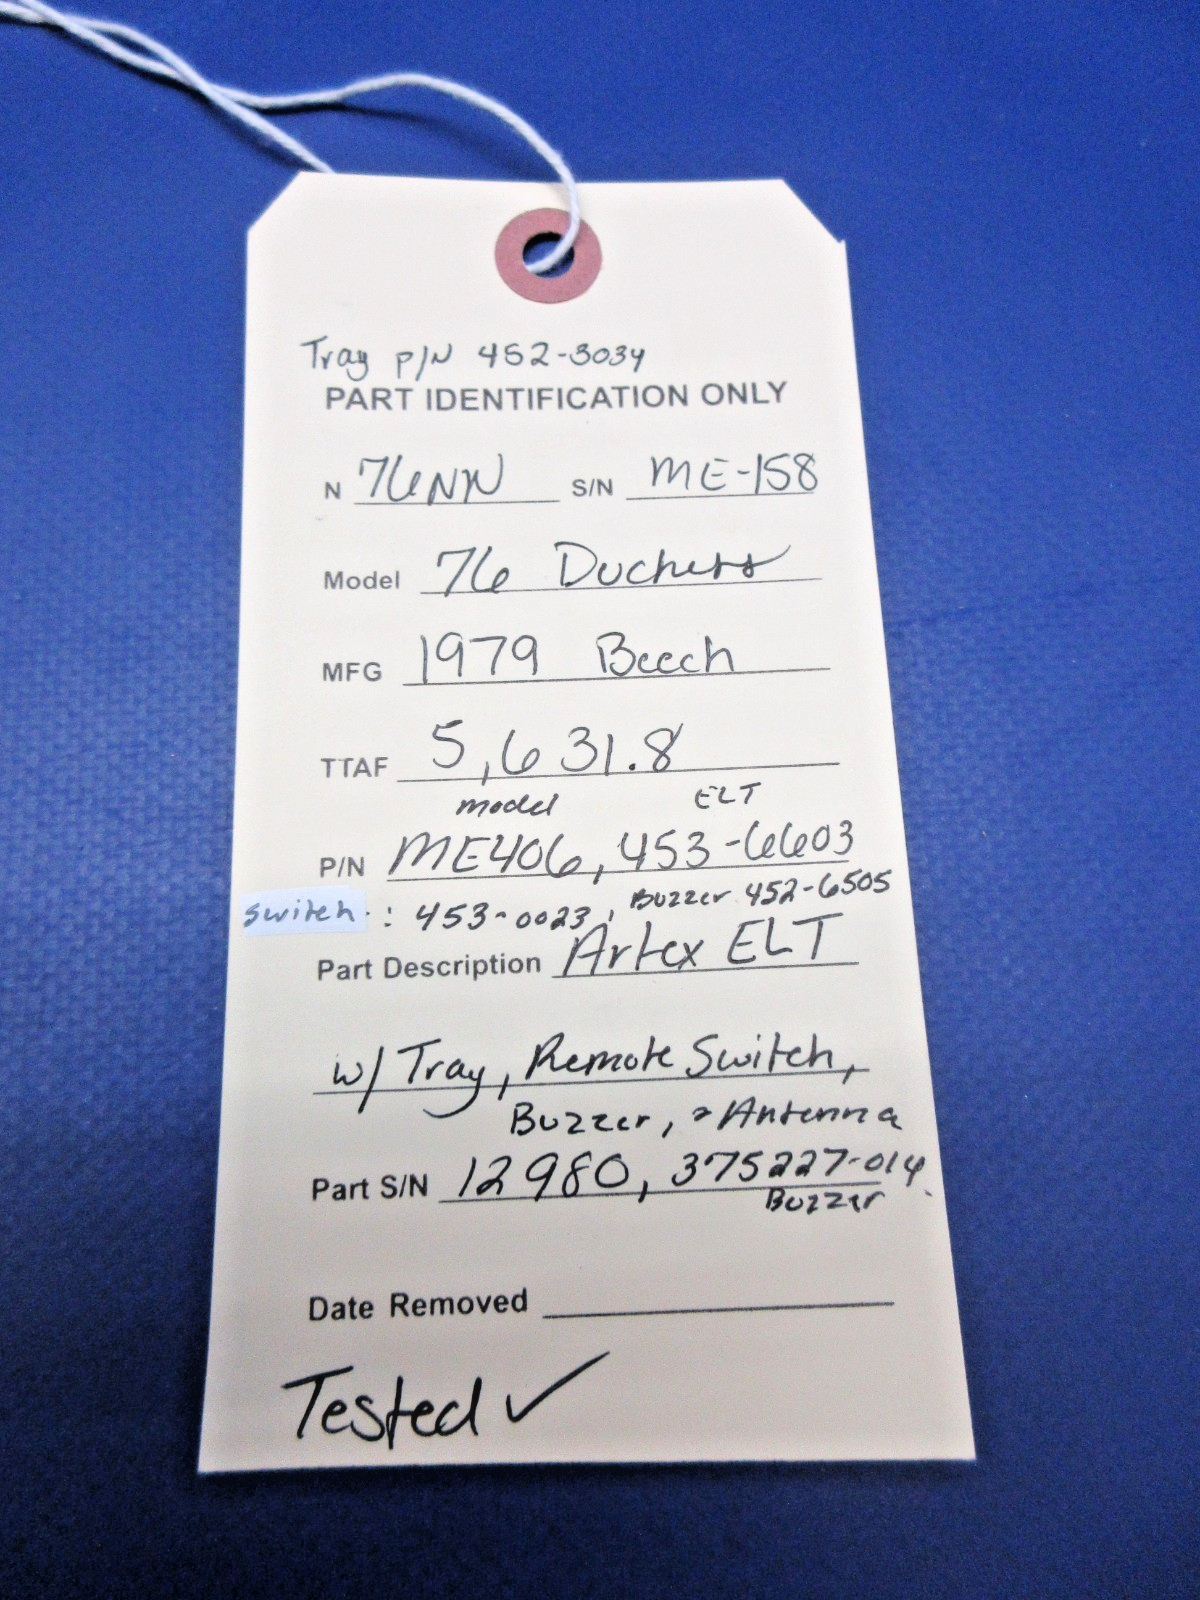 Tray P/N 452-3034
PART IDENTIFICATION ONLY
N 76NN S/N ME-158
Model 76 Duchess
MFG 1979 Beech
TTAF 5,631.8
model ELT
P/N ME406, 453-6603
switch : 453-0023, Buzzer 452-6505
Part Description Artex ELT
w/ Tray, Remote Switch,
Buzzer, & Antenna
Part S/N 12980, 375227-014
Buzzer
Date Removed
Tested ✓